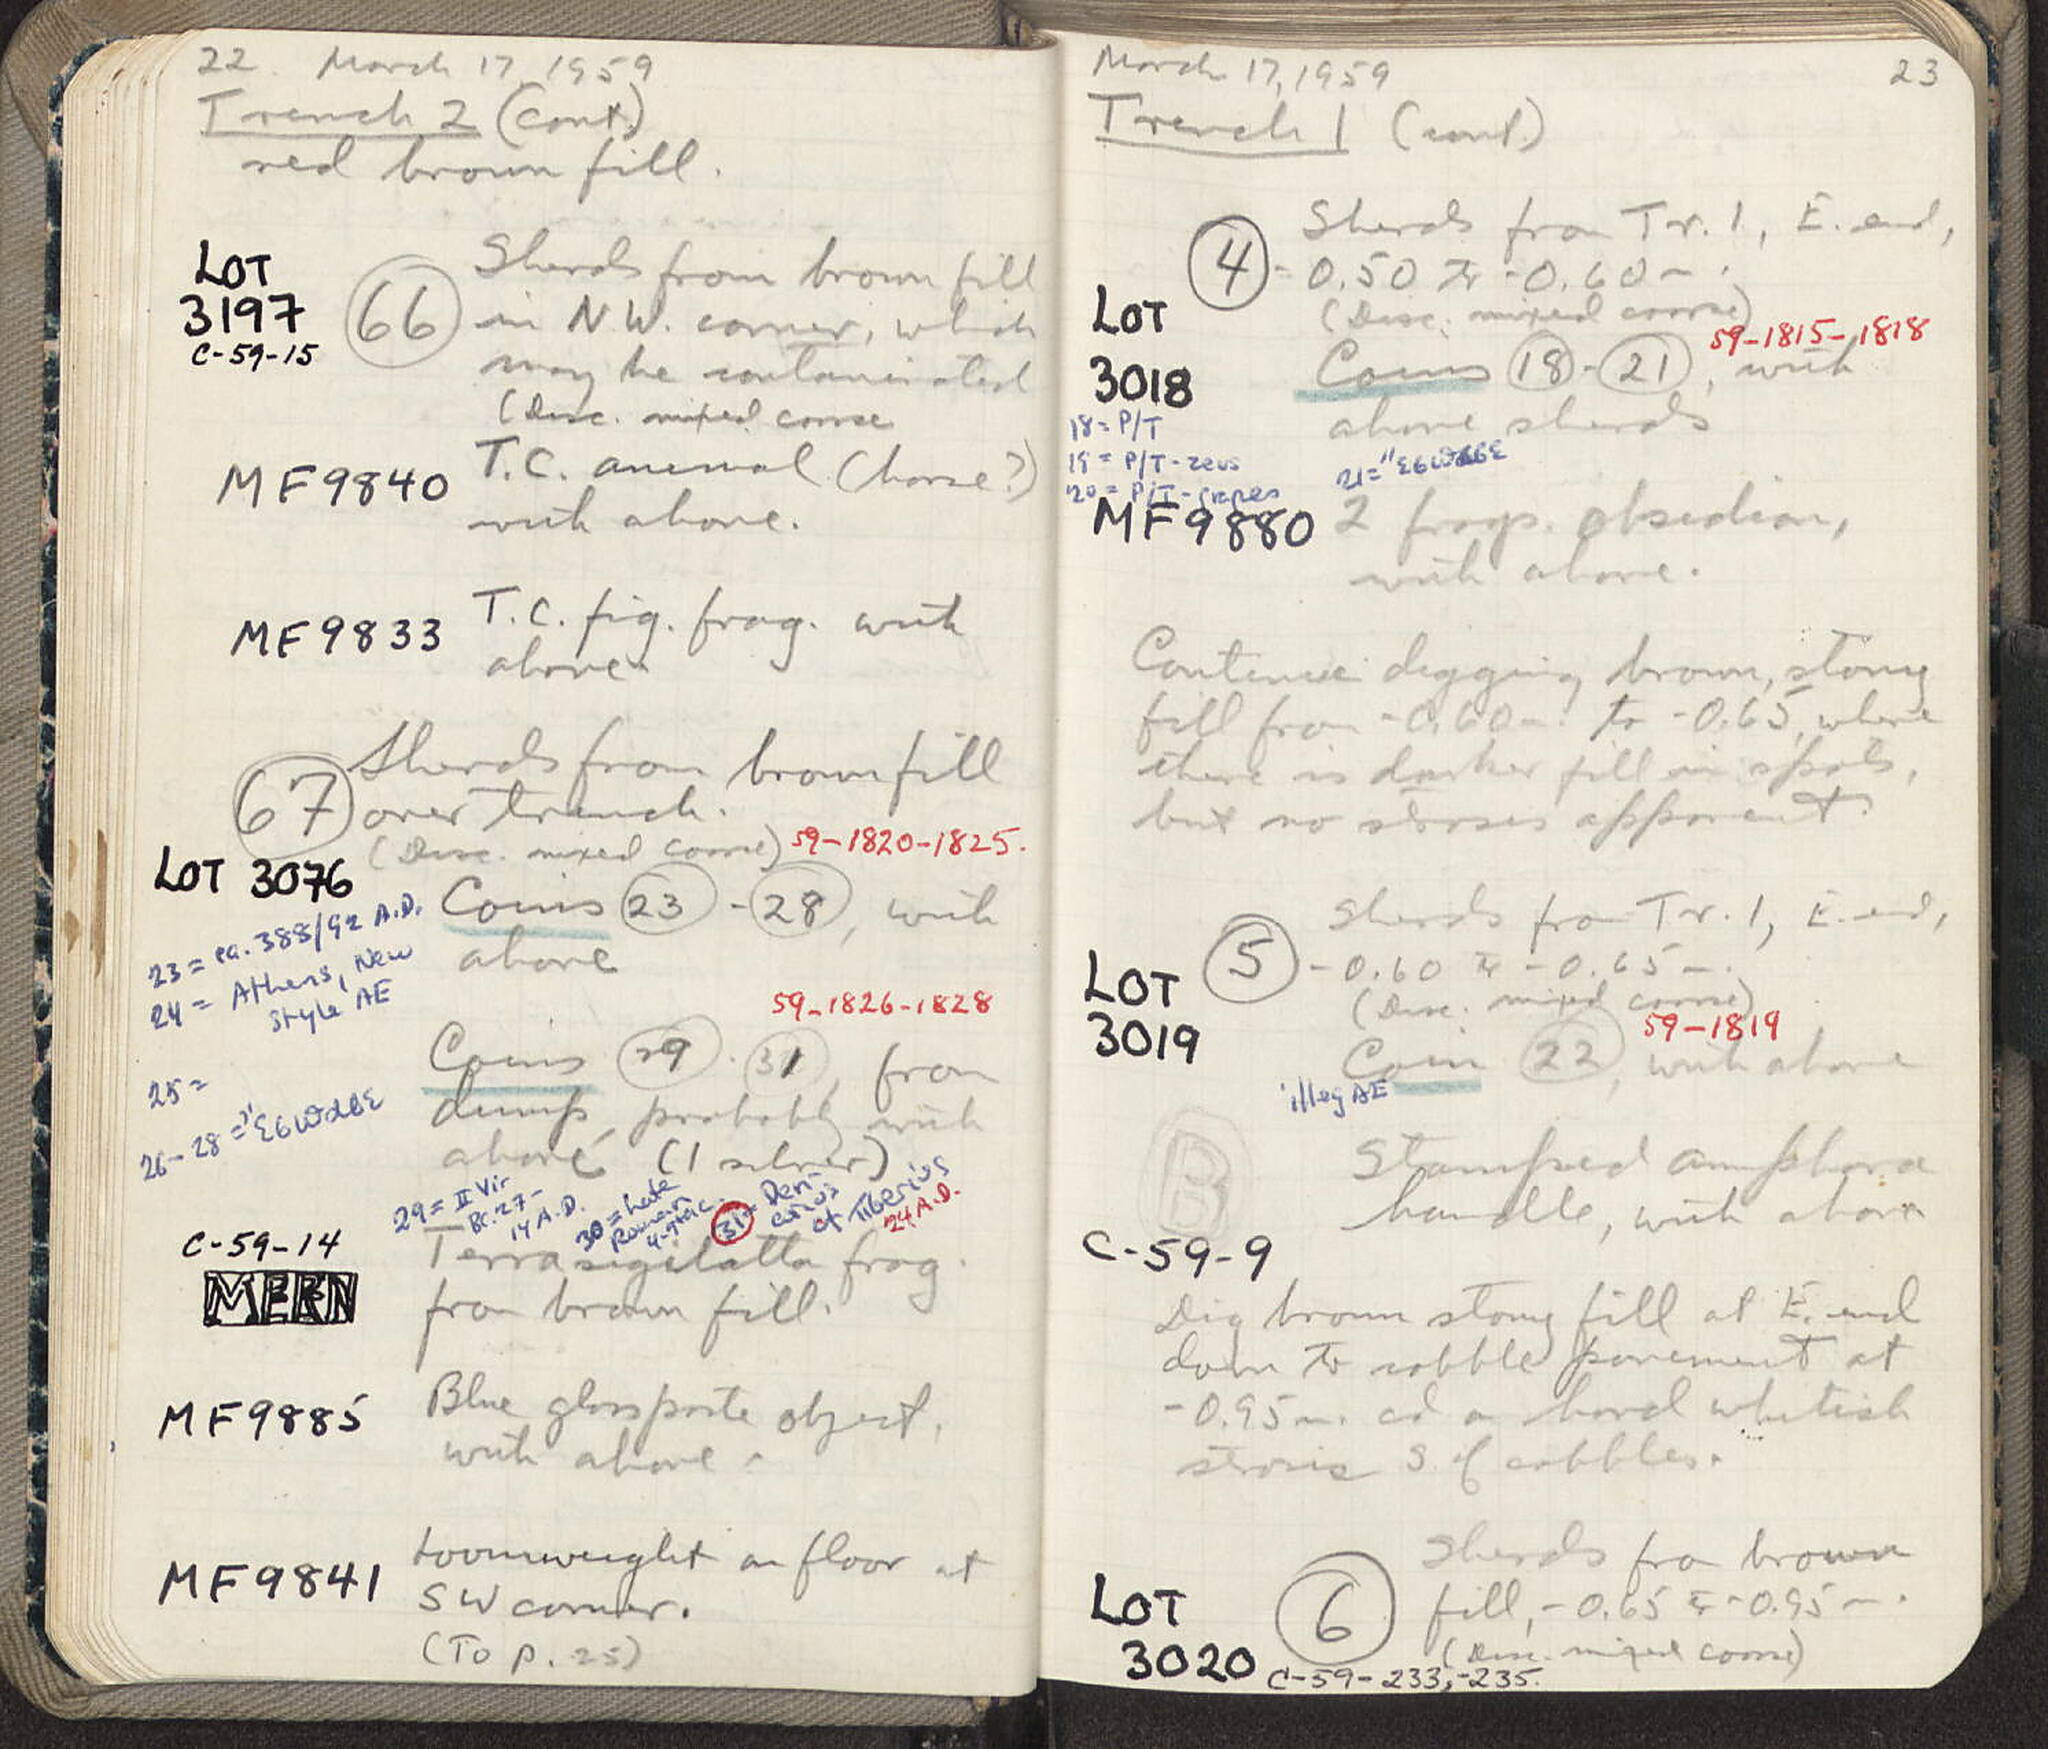 22 March 17, 1959
Trench 2 (cont.)
red brown fill.
LOT
3197
C-59-15
66
Sherds from brown fill
in N.W. corner, which
may be contaminated
(Disc. mixed coarse
MF9840
T.C. animal (horse?)
with above.
MF9833
T.C. fig. frag. with
above.
67
Sherds from brown fill
over trench.
(Disc. mixed coarse) 59-1820-1825.
LOT 3076
Coins 23 - 28, with
above
23 = ca. 388/92 A.D.
24 = Athens, New
Style AE
25 =
26-28 =
59-1826-1828
Coins 29 - 31, from
dump, probably with
above (1 silver)
29 = II Vir
BC. 27-
14 A.D.
30 = Late
Roman
31 = Den-
arius
of Tiberius
24 A.D.
C-59-14
MEEN
Terra sigilatta frag.
from brown fill.
MF9885
Blue glass paste object,
with above.
MF9841
Loomweight on floor at
SW corner.
(To p. 25)
March 17, 1959 23
Trench 1 (cont.)
4
Sherds from Tr. 1, E. end,
-0.50 to -0.60 m.
(Disc. mixed coarse)
LOT
3018
59-1815-1818
Coins 18 - 21, with
above sherds
18 = P/T
19 = P/T - Zeus
20 = P/T - grapes
21 =
MF9880
2 frags. obsidian,
with above.
Continue digging brown, stony
fill from -0.60 m. to -0.65, where
there is darker fill in spots,
but no stroses apparent.
5
Sherds from Tr. 1, E. end,
-0.60 to -0.65 m.
(Disc. mixed coarse)
LOT
3019
59-1819
Coin 22, with above
illeg AE
B
Stamped amphora
handle, with above
C-59-9
Dig brown stony fill at E. end
down to cobble pavement at
-0.95 m. and a hard whitish
strosis S of cobbles.
6
Sherds fro brown
fill, -0.65 to -0.95 m.
(Disc. mixed coarse)
LOT
3020
C-59-233,-235.